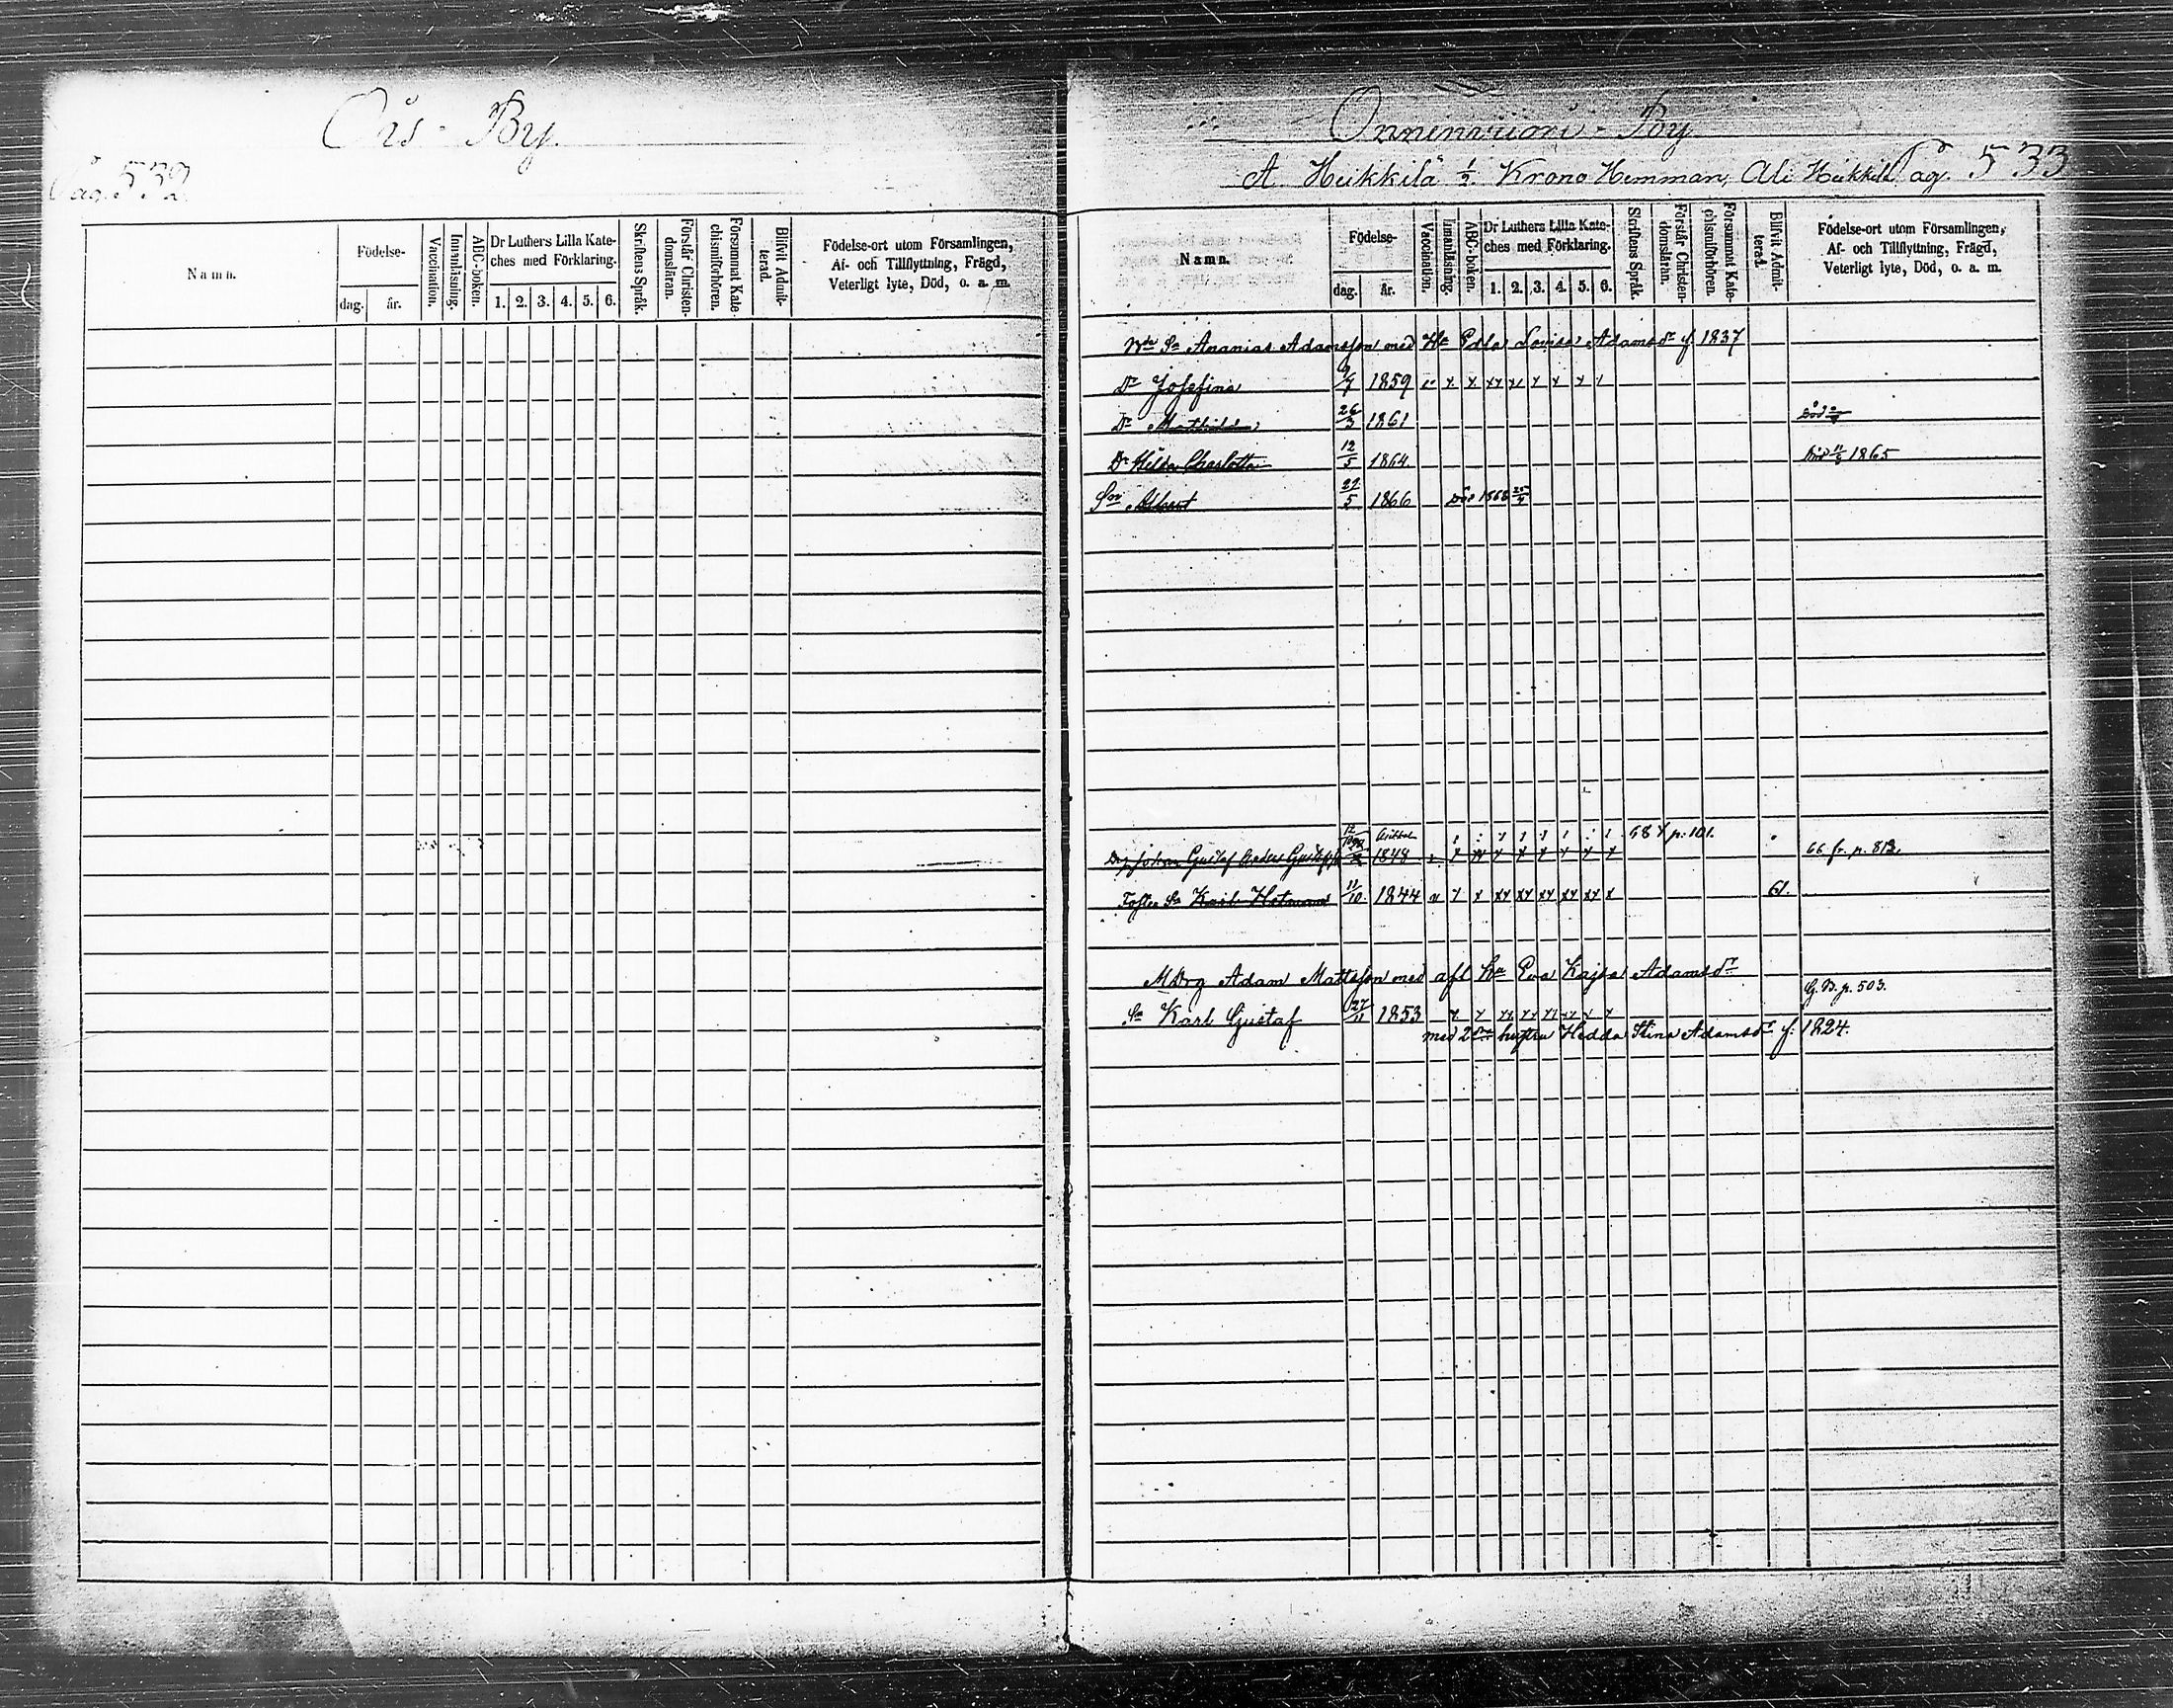 Ois - By.
Pag. 532.
Namn.
Födelse-
dag.
år.
Vaccination.
Innanläsning.
ABC-boken.
Dr Luthers Lilla Kate-
ches med Förklaring.
1. 2. 3. 4. 5. 6.
Skriftens Språk.
Förstår Christen-
domsläran.
Försummat Kate-
chismiförhören.
Blifvit Admit-
terad.
Födelse-ort utom Församlingen,
Af- och Tillflyttning, Frägd,
Veterligt lyte, Död, o. a. m.
Onninvuori - By
A. Heikkilä ½ Krono Hemman, Ali Heikkilä Pag. 533
Namn.
Födelse-
dag.
år.
Vaccination.
Innanläsning.
ABC-boken.
Dr Luthers Lilla Kate-
ches med Förklaring.
1. 2. 3. 4. 5. 6.
Skriftens Språk.
Förstår Christen-
domsläran.
Försummat Kate-
chismiförhören.
Blifvit Admit-
terad.
Födelse-ort utom Församlingen,
Af- och Tillflyttning, Frägd,
Veterligt lyte, Död, o. a. m.
Sn Ananias Adamsson med Hu Edla Lovisa Adamsdr f. 1837
Dr Josefina 9/7 1859
Dr Mathilda 26/3 1861 död
Dr Hilda Charlotta 12/5 1864 död 1865
Son 5 1866 död 1868 25/4
Drg Johan Gustaf 1848 68 p. 101. 66 fr. p. 813.
Foster Sn Karl Hermans 11/10 1844 61.
MDrg Adam Mattsson med afl hu Eva Kajsa Adamsdr
G. B. p. 503.
Sn Karl Gustaf 27/11 1853
med 2dra hustru Hedda Stina Adamsdr f. 1824.